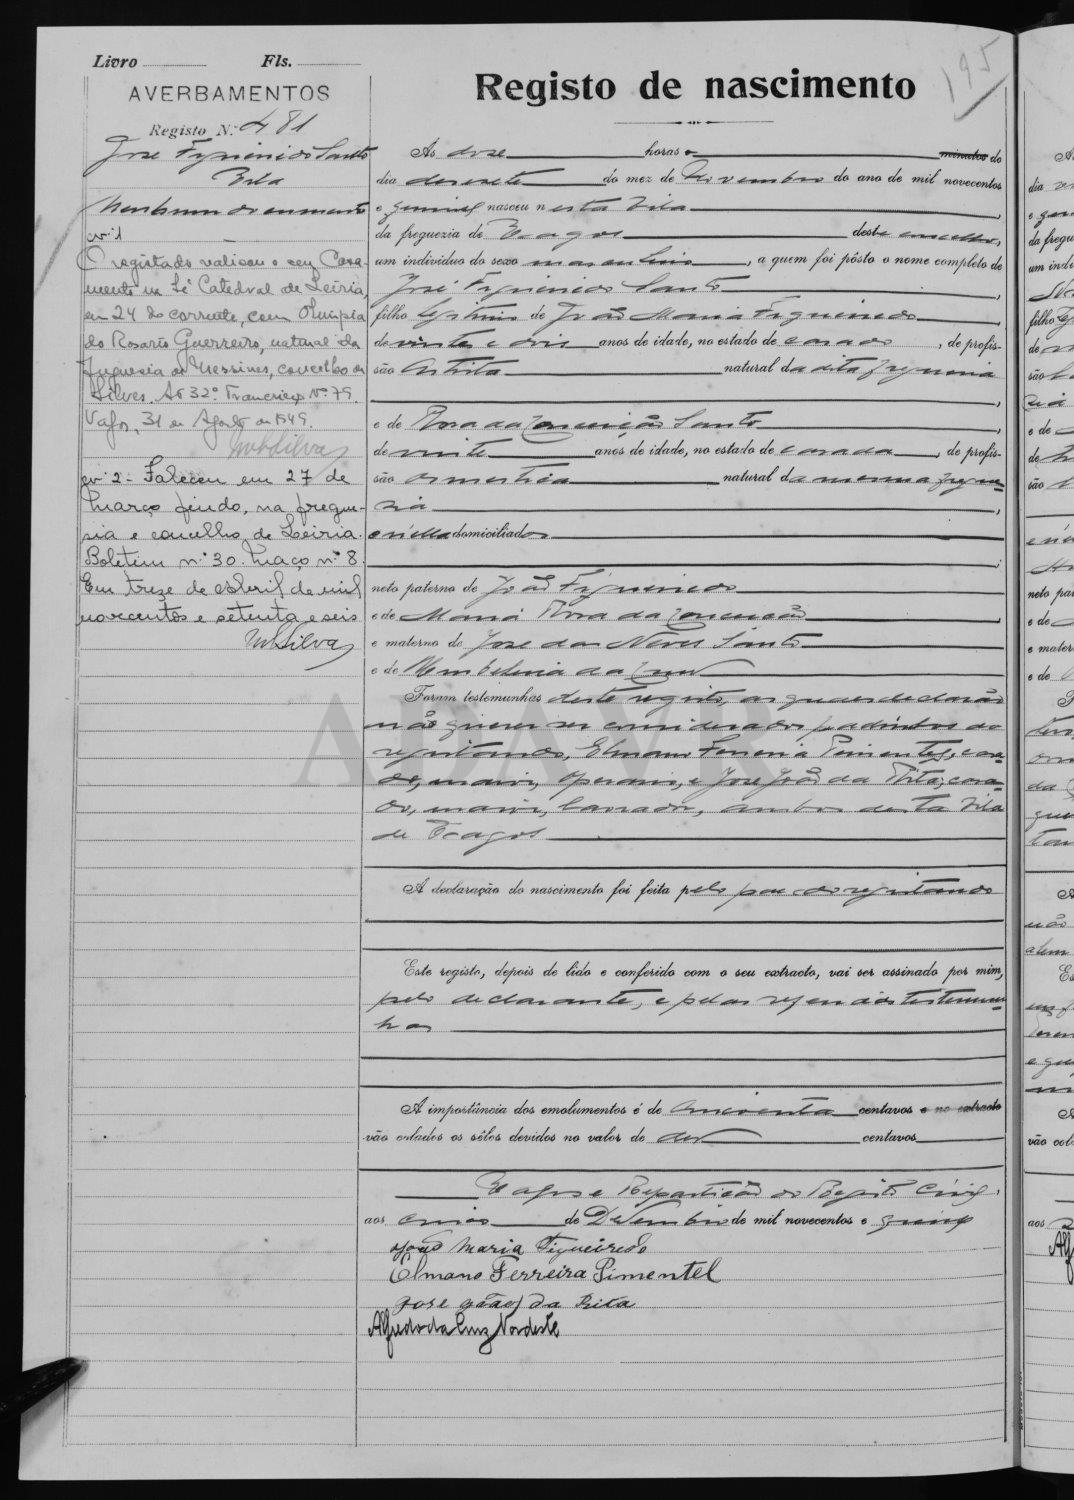 Livro Fls.
AVERBAMENTOS
Registo N.º 481
José Figueiredo Santo
Nenhum documento
nº 1
O registado realisou o seu Casa-
mento na Sé Catedral de Leiria,
em 24 do corrente, com Olimpia
do Rosario Guerreiro, natural da
freguesia de Messines, concelho de
Silves. Nº 79.
Vagos, 31 de Agosto de 1949.
MSilva
nº 2 - Faleceu em 27 de
Março findo, na fregue-
sia e concelho de Leiria.
Boletim nº 30. Maço nº 8.
Em treze de Abril de mil
novecentos e setenta e seis
MSilva
195
Registo de nascimento
Ás doze horas e minutos do
dia desesete do mez de Novembro do ano de mil novecentos
e quinze nasceu n esta Vila
da freguezia de Vagos deste concelho,
um individuo do sexo masculino, a quem foi pôsto o nome completo de
José Figueiredo Santo,
filho legitimo de João Maria Figueiredo,
de vinte e dois anos de idade, no estado de casado, de profis-
são Artista natural da dita freguesia
e de Rosa da Conceição Santo
de vinte anos de idade, no estado de casada, de profis-
são domestica natural da mesma fregue-
sia
e nella domiciliados
neto paterno de João Figueiredo
e de Maria Rosa da Conceição
e materno de José das Neves Santo
e de Umbelina da Cruz
Foram testemunhas deste registo, as quaes declarão
não querer ser considerados padrinhos do
registando, Elmano Ferreira Pimentel, casa-
do, maior, operario, e José João da Rita, casa-
do, maior, lavrador, ambos desta Vila
de Vagos
A declaração do nascimento foi feita pelo pae do registando
Este registo, depois de lido e conferido com o seu extracto, vai ser assinado por mim,
pelo declarante, e pelas referidas testemu-
nhas
A importância dos emolumentos é de cincoenta centavos e no extracto
vão colados os sêlos devidos no valor de dez centavos
Vagos e Repartição do Registo Civil,
aos cinco de Dezembro de mil novecentos e quinze
João Maria Figueiredo
Elmano Ferreira Pimentel
José João da Rita
Alfredo da Cruz Nordeste